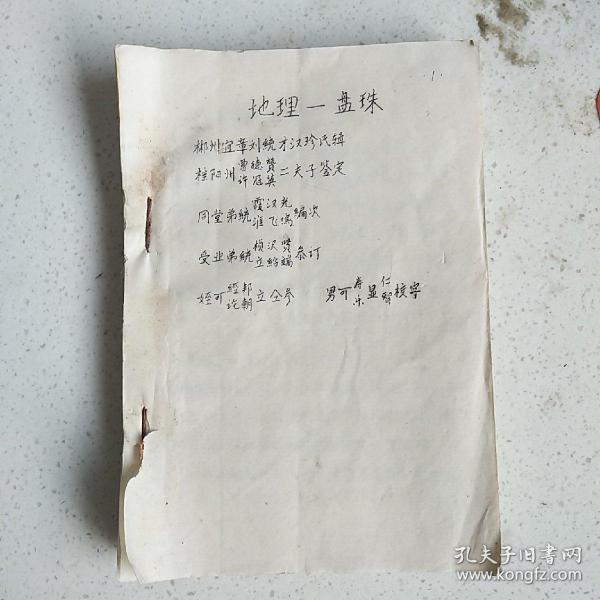 1.
地理一盘珠
郴州宜章刘統才汉珍氏辑
桂阳州曹德赞许冠英二夫子鉴定
同堂弟統霞汉光淮飞鴻編次
受业弟統桢汉贤立給端叅订
姪可經邦論朝立仝参 男可寿乐显仁智校字
孔夫子旧書网
www.kongfz.com